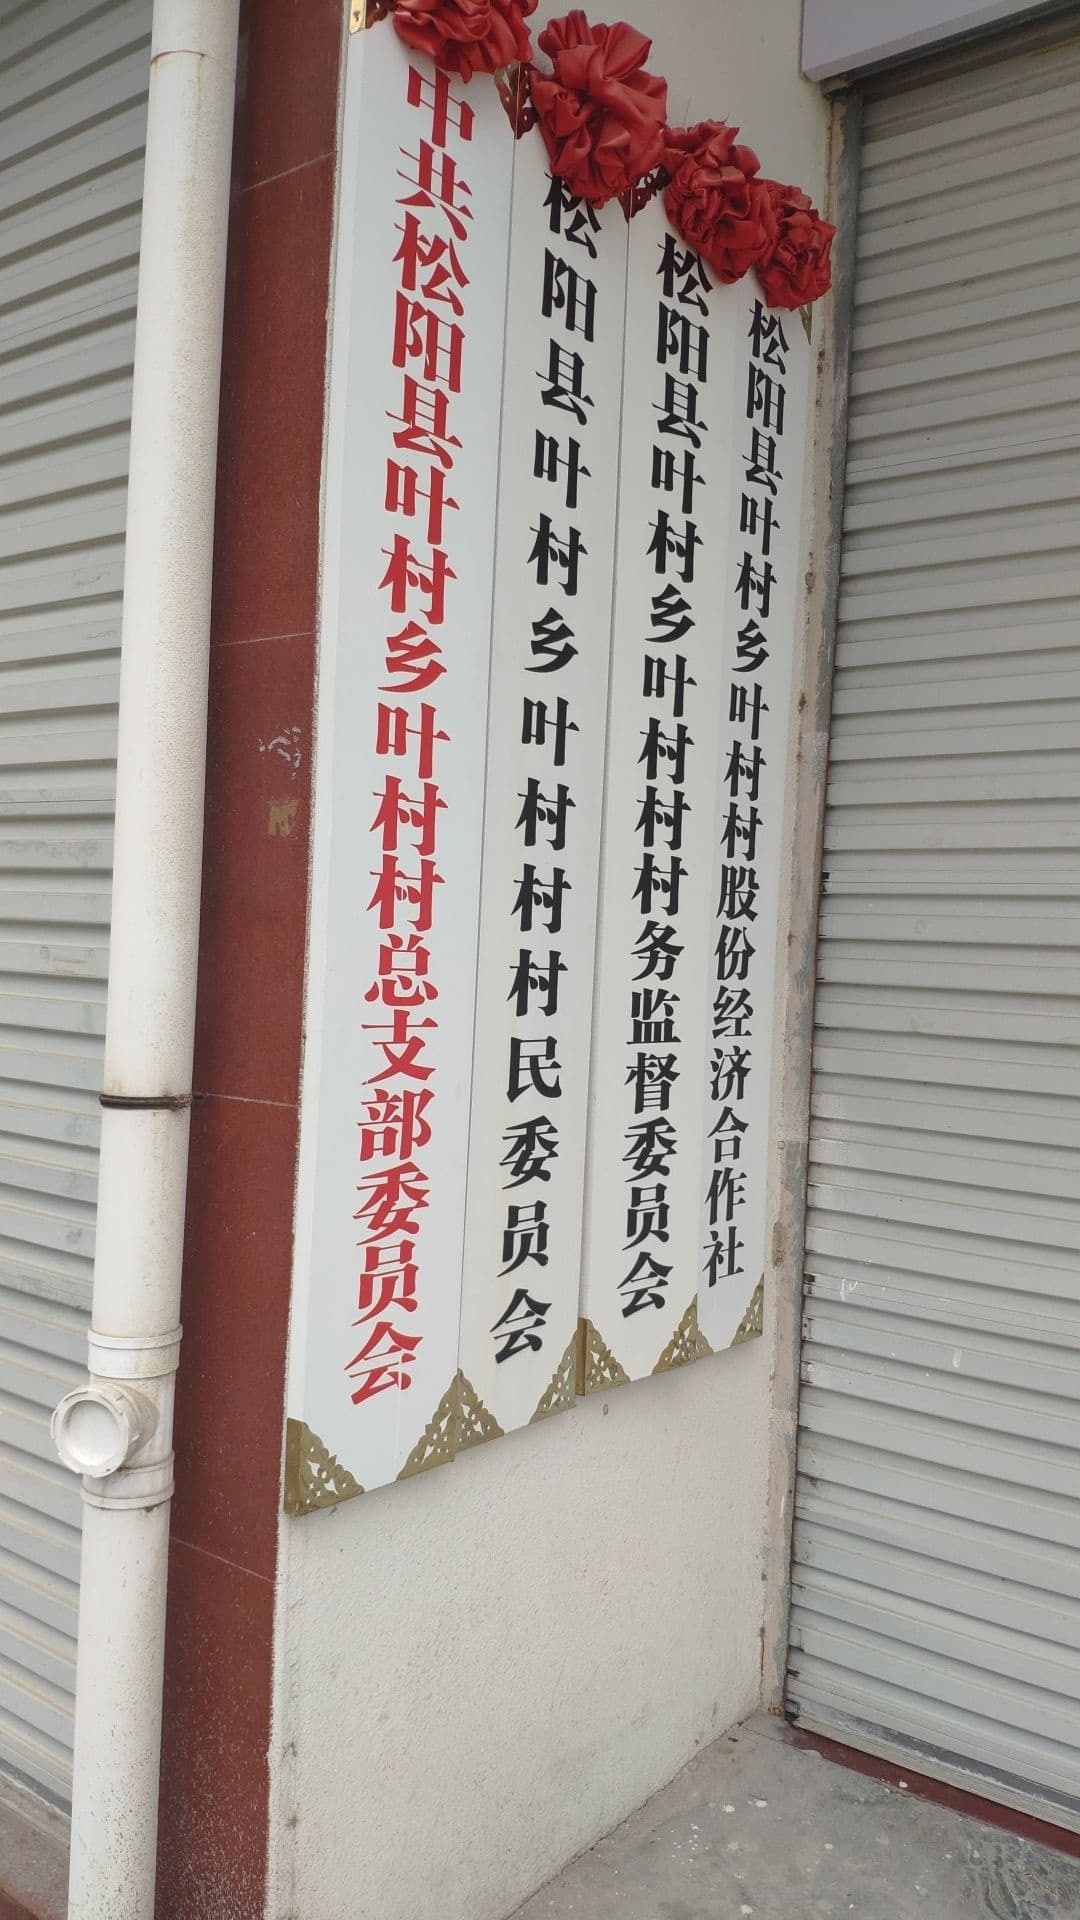 中共松阳县叶村乡叶村村总支部委员会
松阳县叶村乡叶村村村民委员会
松阳县叶村乡叶村村村务监督委员会
松阳县叶村乡叶村村股份经济合作社